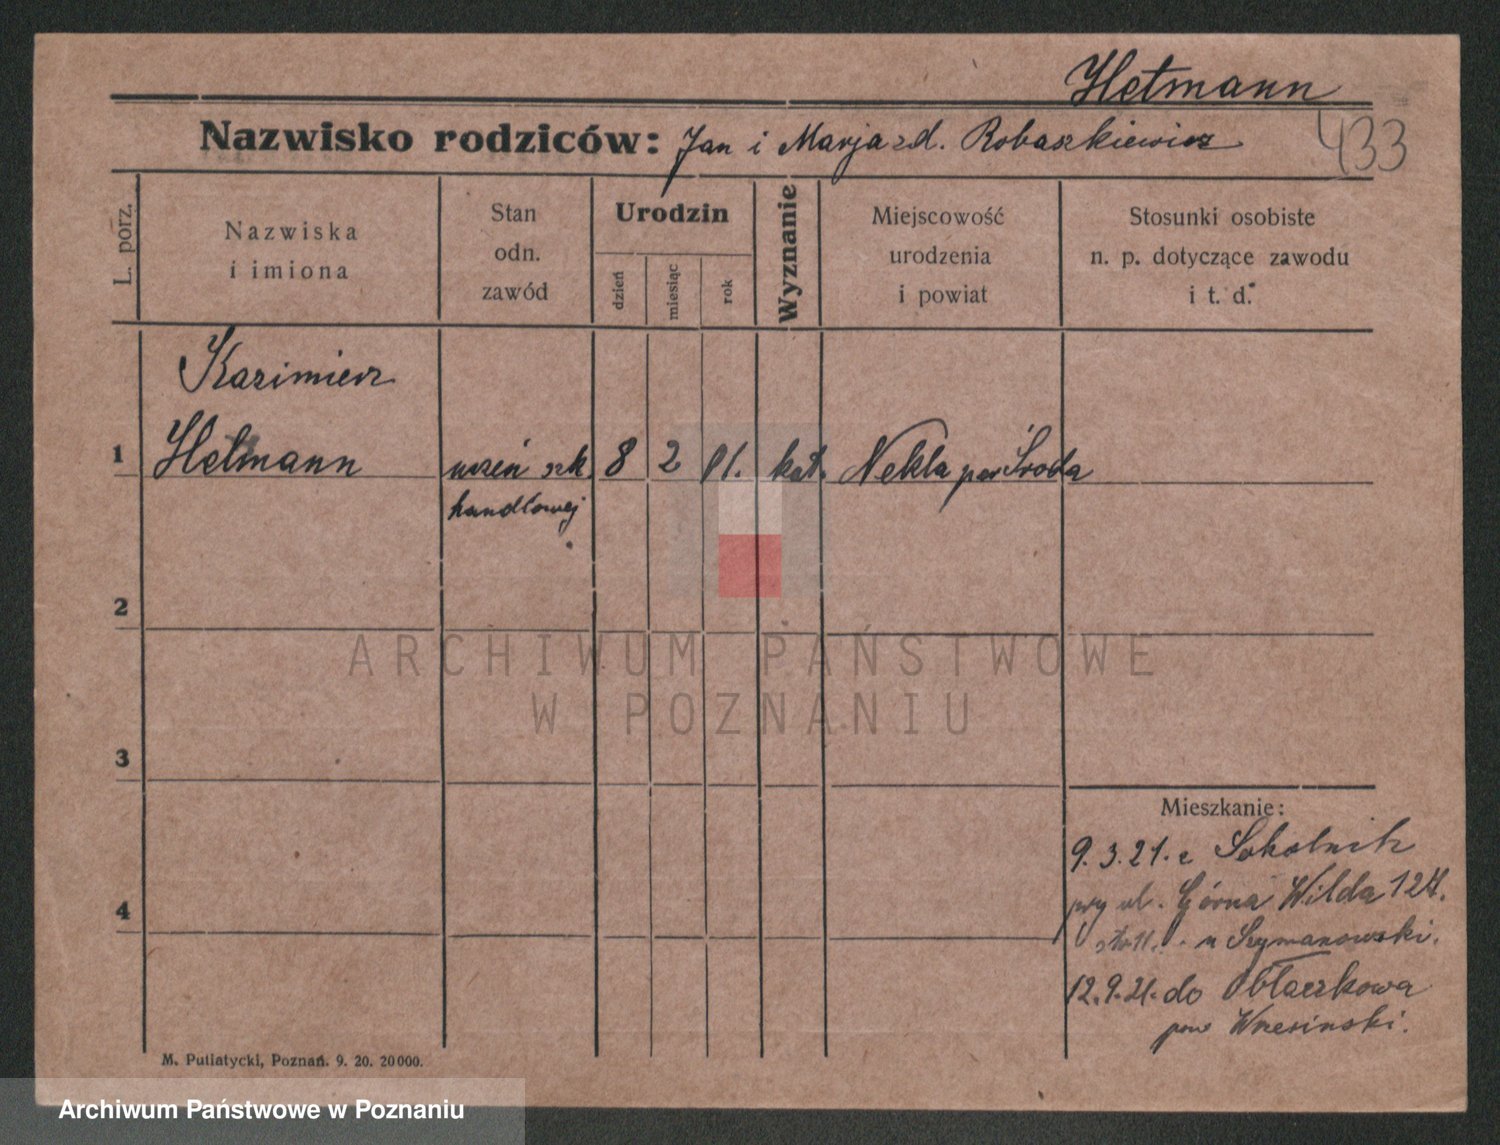 Hetmann
Nazwisko rodziców: Jan i Marja zd. Robaszkiewicz
433
L. porz.
Nazwiska
i imiona
Stan
odn.
zawód
Urodzin
dzień
miesiąc
rok
Wyznanie
Miejscowość
urodzenia
i powiat
Stosunki osobiste
n. p. dotyczące zawodu
i t. d.
Kazimierz
1 Hetmann uczeń szk. 8 2 01. kat. Nekla pow Środa
handlowej
2
3
4
Mieszkanie:
9.3.21. z Sokolnik
przy ul. Górna Wilda 124.
u Szymanowski.
12.9.21. do Obłaczkowa
pow Wrzesinski.
M. Putiatycki, Poznań. 9. 20. 20000.
ARCHIWUM PAŃSTWOWE
W POZNANIU
Archiwum Państwowe w Poznaniu